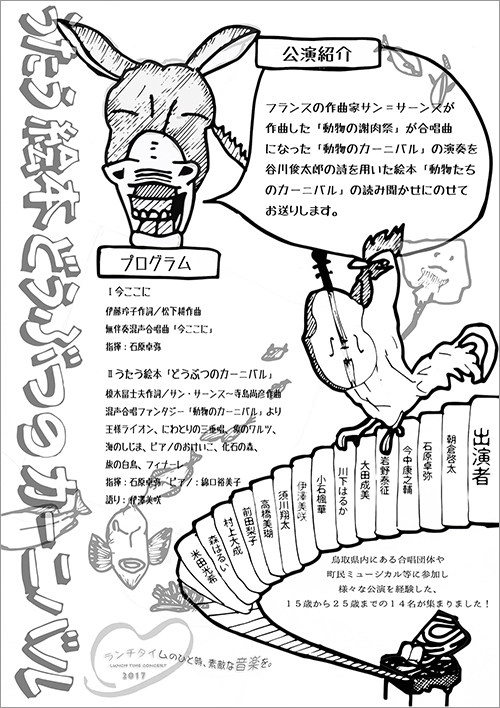 うたう絵本どうぶつのカーニバル
公演紹介
フランスの作曲家サン＝サーンスが
作曲した「動物の謝肉祭」が合唱曲
になった「動物のカーニバル」の演奏を
谷川俊太郎の詩を用いた絵本「動物たち
のカーニバル」の読み聞かせにのせて
お送りします。
プログラム
Ⅰ今ここに
伊藤玲子作詞／松下耕作曲
無伴奏混声合唱曲「今ここに」
指揮：石原卓弥
Ⅱうたう絵本「どうぶつのカーニバル」
橋本冨士夫作詞／サン・サーンス〜寺島尚彦作曲
混声合唱ファンタジー「動物のカーニバル」より
王様ライオン、にわとりの三重唱、象のワルツ、
海のしじま、ピアノのおけいこ、化石の森、
旅の白鳥、フィナーレ
指揮：石原卓弥 ピアノ：錦口裕美子
語り：伊澤美咲
出演者
朝倉啓太
石原卓弥
今中康之輔
岩野泰征
大田成美
川下はるか
小石楓華
伊澤美咲
須川翔太
高橋美瑚
前田梨子
村上大成
森はるい
米田光希
鳥取県内にある合唱団体や
町民ミュージカル等に参加し
様々な公演を経験した、
１５歳から２５歳までの１４名が集まりました！
ランチタイムのひと時、素敵な音楽を。
LUNCH TIME CONCERT
2017